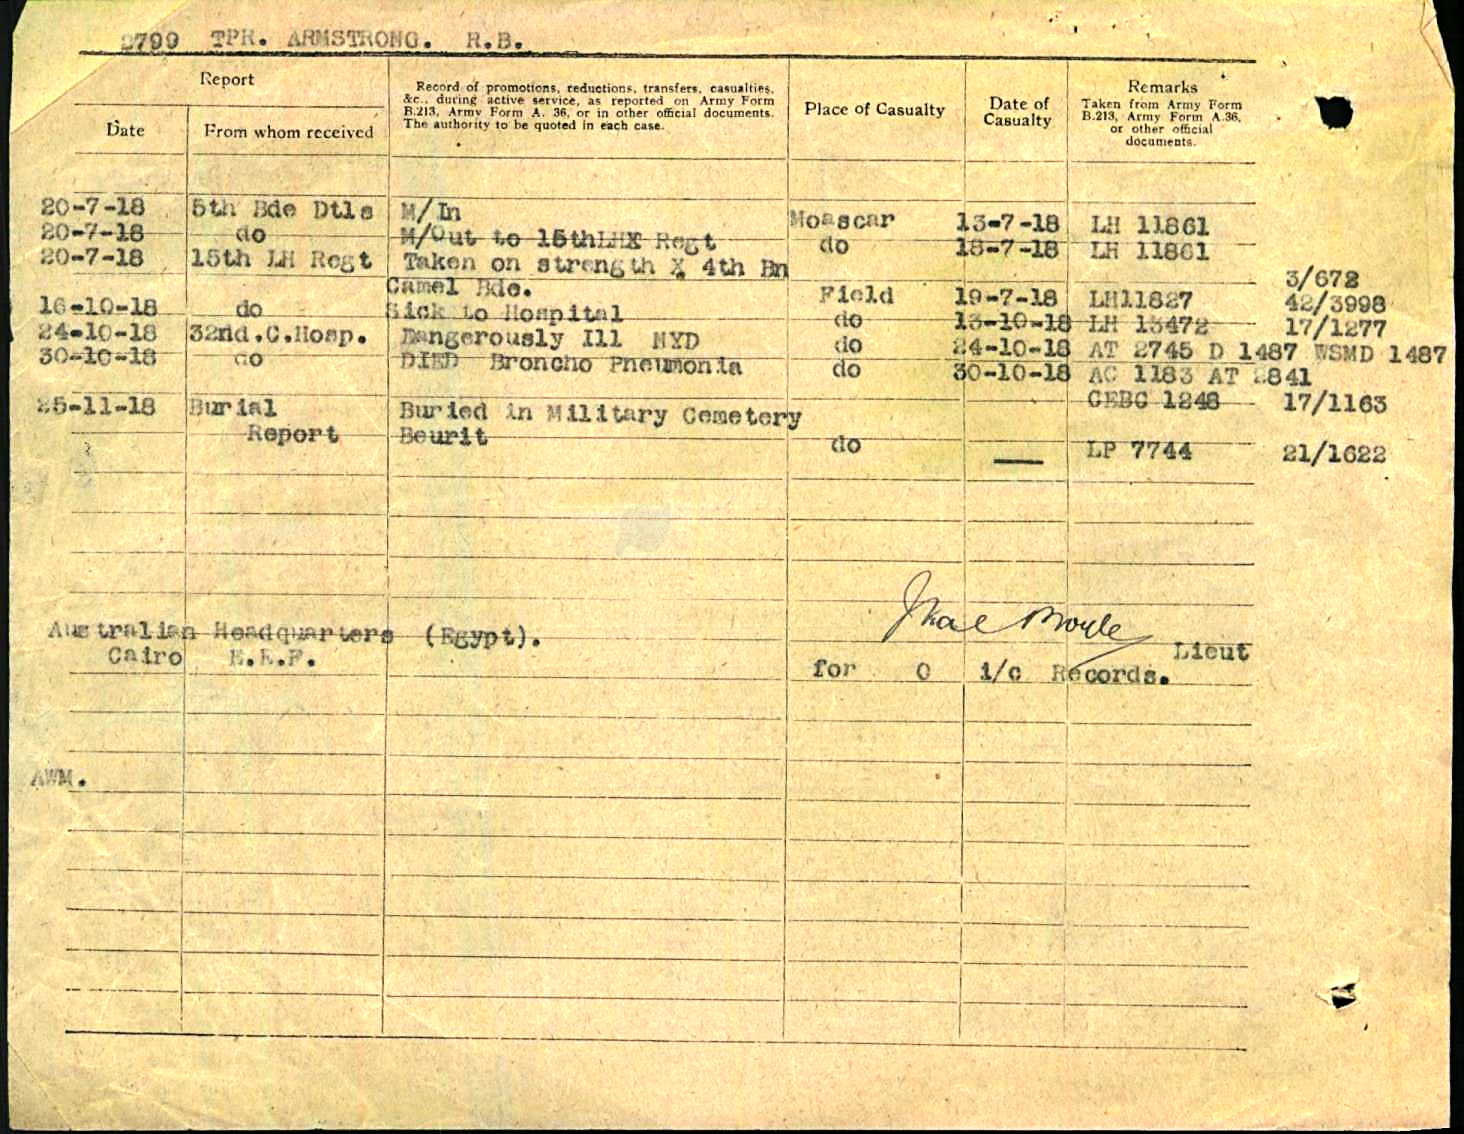 2799 TPR. ARMSTRONG. R.B.
Report
Date
From whom received
Record of promotions, reductions, transfers, casualties,
&c., during active service, as reported on Army Form
B.213, Army Form A. 36, or in other official documents.
The authority to be quoted in each case.
Place of Casualty
Date of
Casualty
Remarks
Taken from Army Form
B.213, Army Form A.36,
or other official
documents.
20-7-18 5th Bde Dtls M/In Moascar 13-7-18 LH 11861
20-7-18 do M/Out to 15thLHX Regt do 18-7-18 LH 11861
20-7-18 15th LH Regt Taken on strength X 4th Bn
Camel Bde. Field 19-7-18 LH11827 3/672
16-10-18 do Sick to Hospital do 13-10-18 LH 13472 42/3998
24-10-18 32nd.C.Hosp. Dangerously Ill NYD do 24-10-18 AT 2745 D 1487 WSMD 1487 17/1277
30-10-18 do DIED Broncho Pneumonia do 30-10-18 AC 1183 AT 2841
CEBC 1248 17/1163
25-11-18 Burial Buried in Military Cemetery
Report Beurit do — LP 7744 21/1622
Australian Headquarters (Egypt).
Cairo E.E.F.
Lieut
for O i/c Records.
AWM.